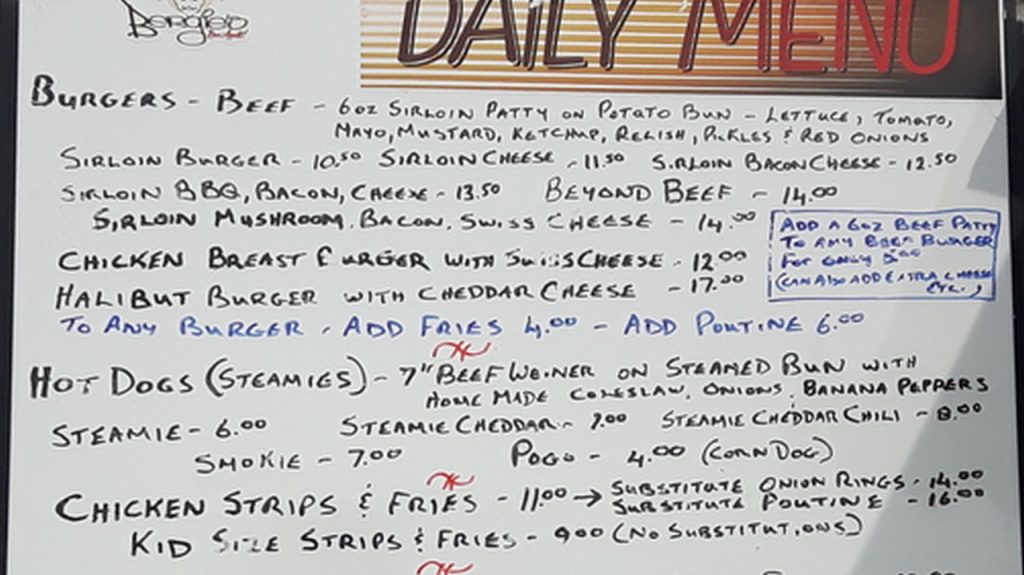 DAILY MENU
BURGERS - BEEF - 6oz SIRLOIN PATTY ON POTATO BUN - LETTUCE, TOMATO,
MAYO, MUSTARD, KETCHUP, RELISH, PICKLES & RED ONIONS
SIRLOIN BURGER - 10.50 SIRLOIN CHEESE - 11.50 SIRLOIN BACON CHEESE - 12.50
SIRLOIN BBQ, BACON, CHEESE - 13.50 BEYOND BEEF - 14.00
SIRLOIN MUSHROOM, BACON, SWISS CHEESE - 14.00
ADD A 6oz BEEF PATTY
TO ANY BEEF BURGER
FOR ONLY 5.00
(CAN ALSO ADD EXTRA CHEESE
ETC.)
CHICKEN BREAST BURGER WITH SWISS CHEESE - 12.00
HALIBUT BURGER WITH CHEDDAR CHEESE - 17.00
TO ANY BURGER - ADD FRIES 4.00 - ADD POUTINE 6.00
HOT DOGS (STEAMIES) - 7" BEEF WEINER ON STEAMED BUN WITH
HOME MADE COLESLAW, ONIONS, BANANA PEPPERS
STEAMIE - 6.00 STEAMIE CHEDDAR - 7.00 STEAMIE CHEDDAR CHILI - 8.00
SMOKIE - 7.00 POGO - 4.00 (CORN DOG)
CHICKEN STRIPS & FRIES - 11.00 → SUBSTITUTE ONION RINGS - 14.00
SUBSTITUTE POUTINE - 16.00
KID SIZE STRIPS & FRIES - 9.00 (NO SUBSTITUTIONS)